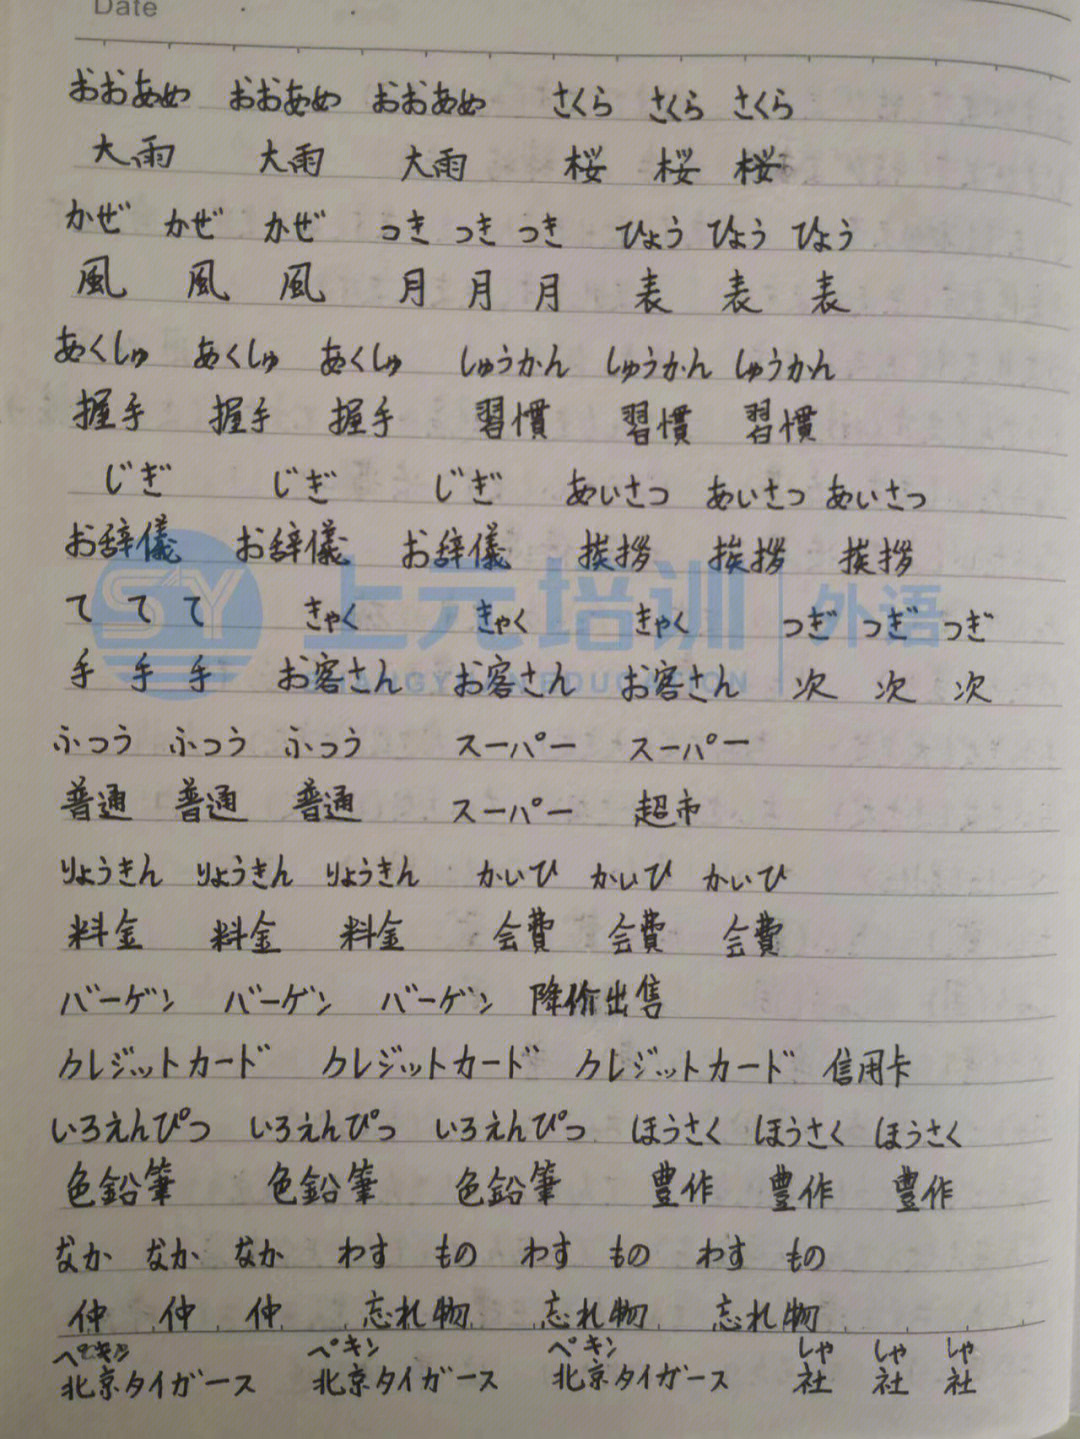 Date
おおあめ おおあめ おおあめ さくら さくら さくら
大雨 大雨 大雨 桜 桜 桜
かぜ かぜ かぜ つき つき つき ひょう ひょう ひょう
風 風 風 月 月 月 表 表 表
あくしゅ あくしゅ あくしゅ しゅうかん しゅうかん しゅうかん
握手 握手 握手 習慣 習慣 習慣
じぎ じぎ じぎ あいさつ あいさつ あいさつ
お辞儀 お辞儀 お辞儀 挨拶 挨拶 挨拶
SY 上元培训 外语
て て て きゃく きゃく きゃく つぎ つぎ つぎ
手 手 手 お客さん お客さん お客さん 次 次 次
SHANGYUAN EDUCATION
ふつう ふつう ふつう スーパー スーパー
普通 普通 普通 スーパー 超市
りょうきん りょうきん りょうきん かいひ かいひ かいひ
料金 料金 料金 会費 会費 会費
バーゲン バーゲン バーゲン 降价出售
クレジットカード クレジットカード クレジットカード 信用卡
いろえんぴつ いろえんぴつ いろえんぴつ ほうさく ほうさく ほうさく
色鉛筆 色鉛筆 色鉛筆 豊作 豊作 豊作
なか なか なか わす もの わす もの わす もの
仲 仲 仲 忘れ物 忘れ物 忘れ物
ペキン ペキン しゃ しゃ しゃ
北京タイガース 北京タイガース 北京タイガース 社 社 社